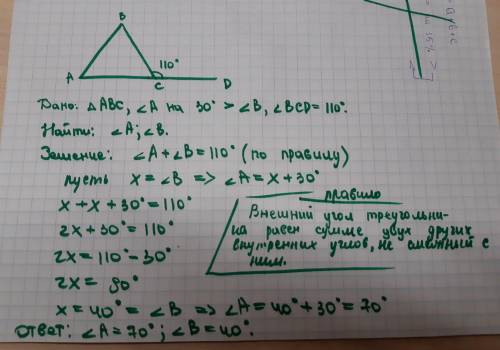 B
110°
A
C
D
Дано: △ABC, ∠A на 30° > ∠B, ∠BCD = 110°.
Найти: ∠A; ∠B.
Решение: ∠A + ∠B = 110° (по правилу)
пусть x = ∠B => ∠A = x + 30°
x + x + 30° = 110°
2x + 30° = 110°
2x = 110° - 30°
2x = 80°
x = 40° = ∠B => ∠A = 40° + 30° = 70°
ответ: ∠A = 70°; ∠B = 40°.
правило
Внешний угол треугольни-
ка равен сумме двух других
внутренних углов, не смежных с
ним.